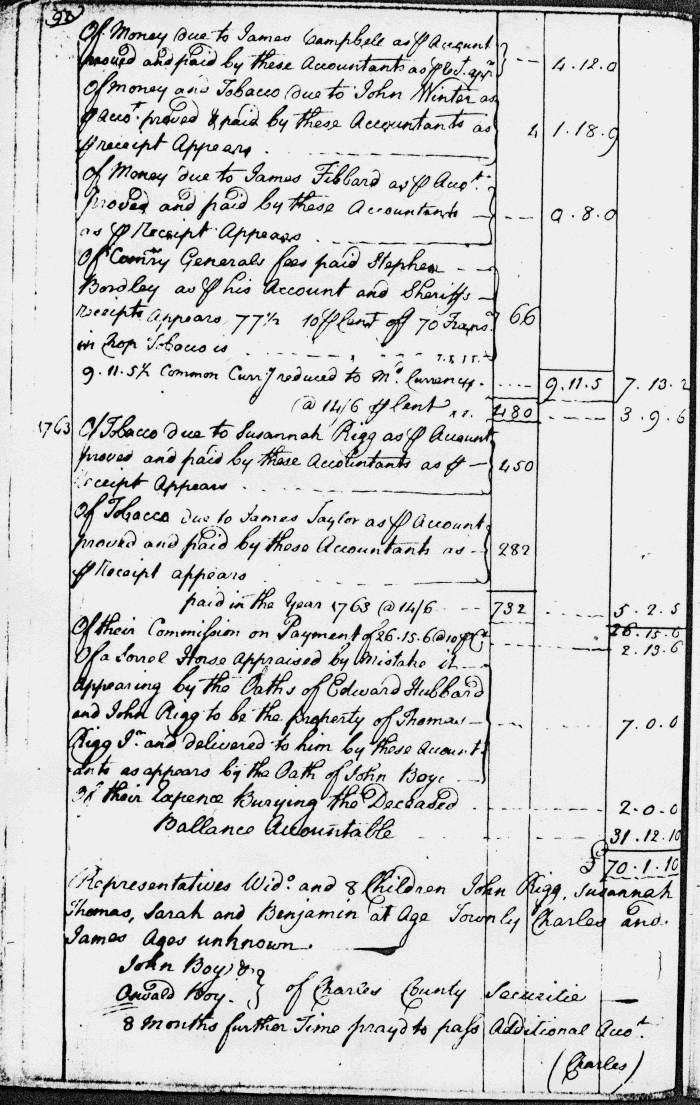 98
Of Money due to James Campbell as ⅌ Account
proved and paid by these Accountants as ⅌ 4.12.0
Of money and Tobacco due to John Winter as
⅌ Accot. proved & paid by these Accountants as 4 1.18.9
⅌ receipt Appears
Of Money due to James Tibbard as ⅌ Accot.
proved and paid by these Accountants 0.8.0
as ⅌ Receipt Appears
Of Comry Generals fees paid Stephen
Bordley as ⅌ his Account and Sheriffs
receipts Appears 77½ 10 ⅌ Cent off 70 66
in Crop Tobacco is
9.11.5½ Common Curry reduced to Md. Currency 9.11.5 7.13.2
@ 14/6 ⅌ Cent 480 3.9.6
1763 Of Tobacco due to Susannah Rigg as ⅌ Account
proved and paid by these Accountants as ⅌ 450
receipt Appears
Of Tobacco due to James Taylor as ⅌ Account
proved and paid by these Accountants as 282
⅌ Receipt appears
paid in the Year 1763 @ 14/6 732 5.2.5
26.15.6
Of their Commission on Payment of 26.15.6 @ 10 ⅌ Ct 2.13.6
Of a Sorrel Horse Appraised by Mistake it
appearing by the Oaths of Edward Hubbard
and John Rigg to be the property of Thomas 7.0.0
Rigg Jr. and delivered to him by these Account
ants as appears by the Oath of John Boye
Of their Expence Burying the Deceased 2.0.0
Ballance Accountable 31.12.10
£ 70.1.10
Representatives Wido. and 8 Children John Rigg, Susannah
Thomas, Sarah and Benjamin at Age Townly Charles and
James Ages unknown.
John Boye &
Oswald Boy. } of Charles County Securitie
8 Months further Time prayd to pass Additional Accot.
(Charles)